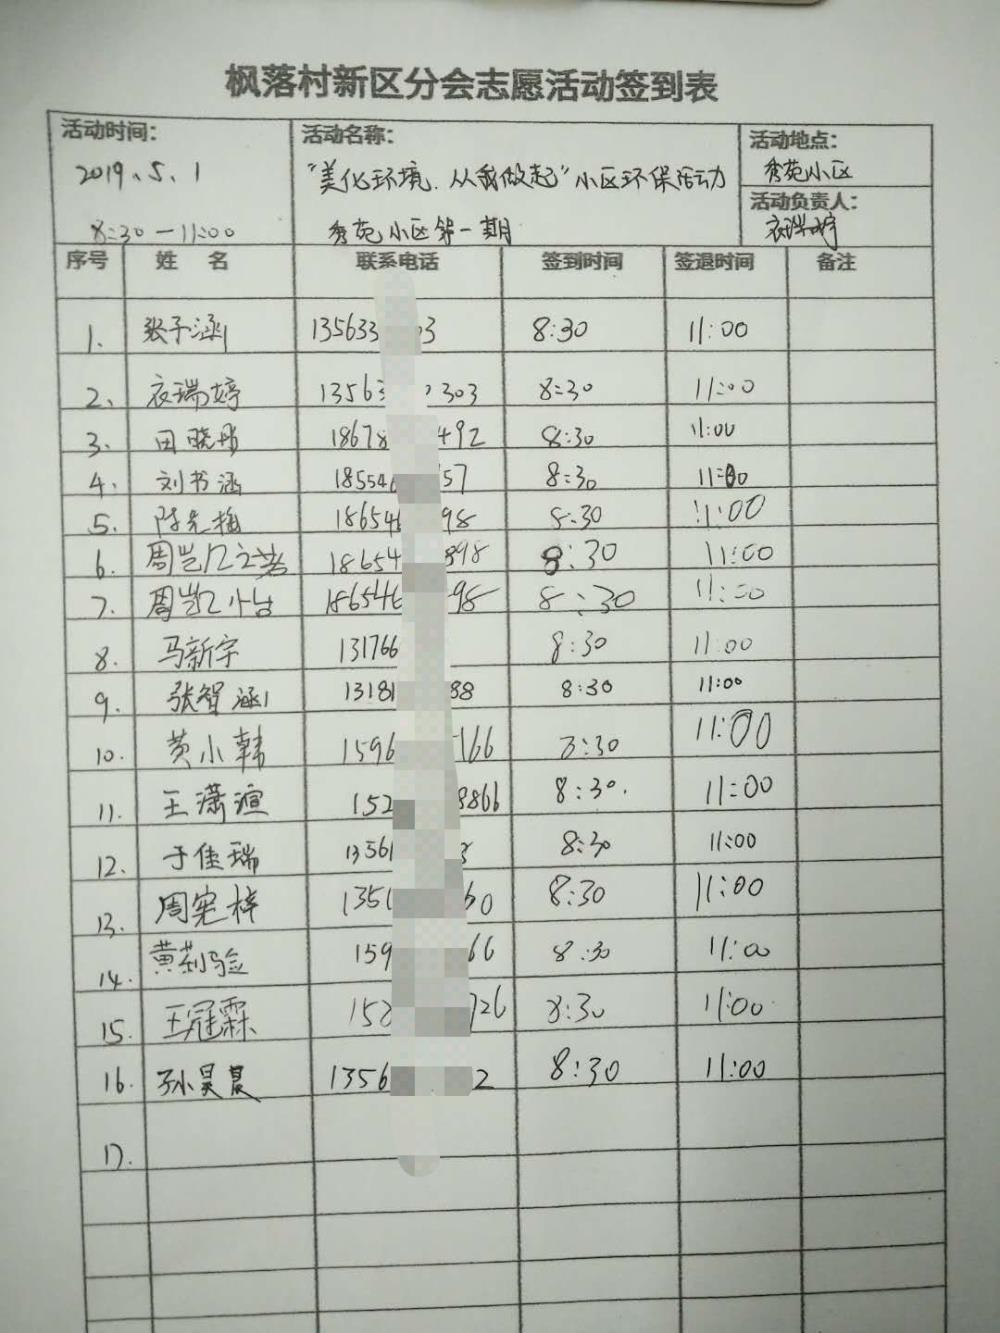 枫落村新区分会志愿活动签到表
活动时间： 活动名称： 活动地点：
2019.5.1 “美化环境.从我做起”小区环保活动 秀苑小区
活动负责人：
8:30-11:00 秀苑小区第一期 衣瑞婷
序号 姓 名 联系电话 签到时间 签退时间 备注
1. 张子涵 135633 3 8:30 11:00
2、 衣瑞婷 1356 303 8:30 11:00
3. 田晓彤 18678 492 8:30 11:00
4. 刘书涵 18554 57 8:30 11:00
5. 陈先梅 186546 98 8:30 11:00
6. 周岂 18654 898 8:30 11:00
7. 周凯 186546 98 8:30 11:00
8. 马新宇 131766 8:30 11:00
9. 张智涵 13181 88 8:30 11:00
10. 黄小韩 1596 166 8:30 11:00
11. 王潇渲 152 8866 8:30. 11:00
12. 于佳瑞 13561 8:30 11:00
13. 周宪梓 135 60 8:30 11:00
14. 黄莉 159 66 8:30 11:00
15. 王冠霖 152 726 8:30 11:00
16. 孙昊晨 1356 2 8:30 11:00
17.